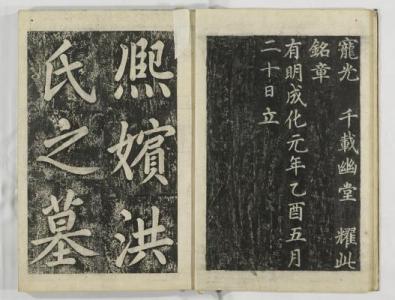 寵光 千載幽堂 耀此
銘章
有明成化元年乙酉五月
二十日立
熈嬪洪
氏之墓